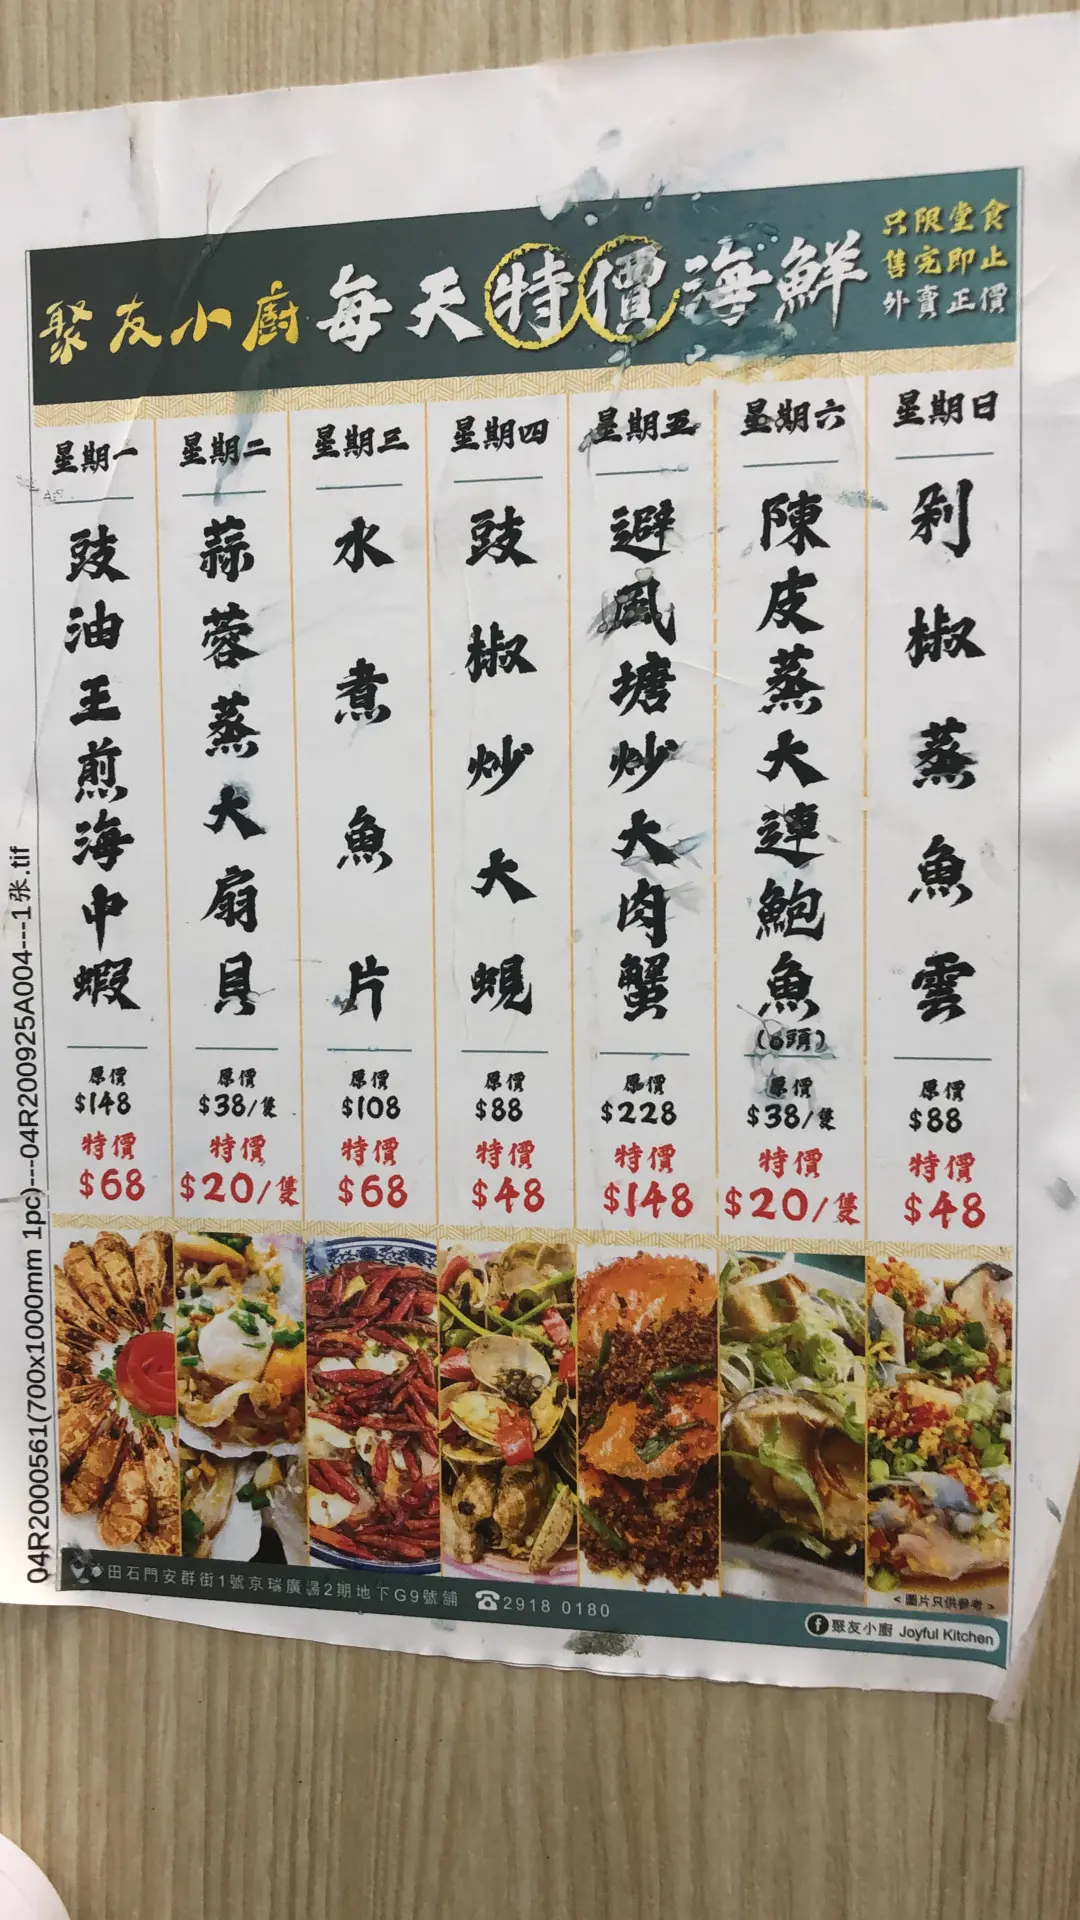 聚友小廚 每天特價海鮮
只限堂食
售完即止
外賣正價
星期一
豉油王煎海中蝦
原價
$148
特價
$68
星期二
蒜蓉蒸大扇貝
原價
$38/隻
特價
$20/隻
星期三
水煮魚片
原價
$108
特價
$68
星期四
豉椒炒大蜆
原價
$88
特價
$48
星期五
避風塘炒大肉蟹
原價
$228
特價
$148
星期六
陳皮蒸大連鮑魚
(8頭)
原價
$38/隻
特價
$20/隻
星期日
剁椒蒸魚雲
原價
$88
特價
$48
田石門安群街1號京瑞廣場2期地下G9號舖 2918 0180
<圖片只供參考>
聚友小廚 Joyful Kitchen
04R200561(700x1000mm 1pc)---04R200925A004---1张.tif